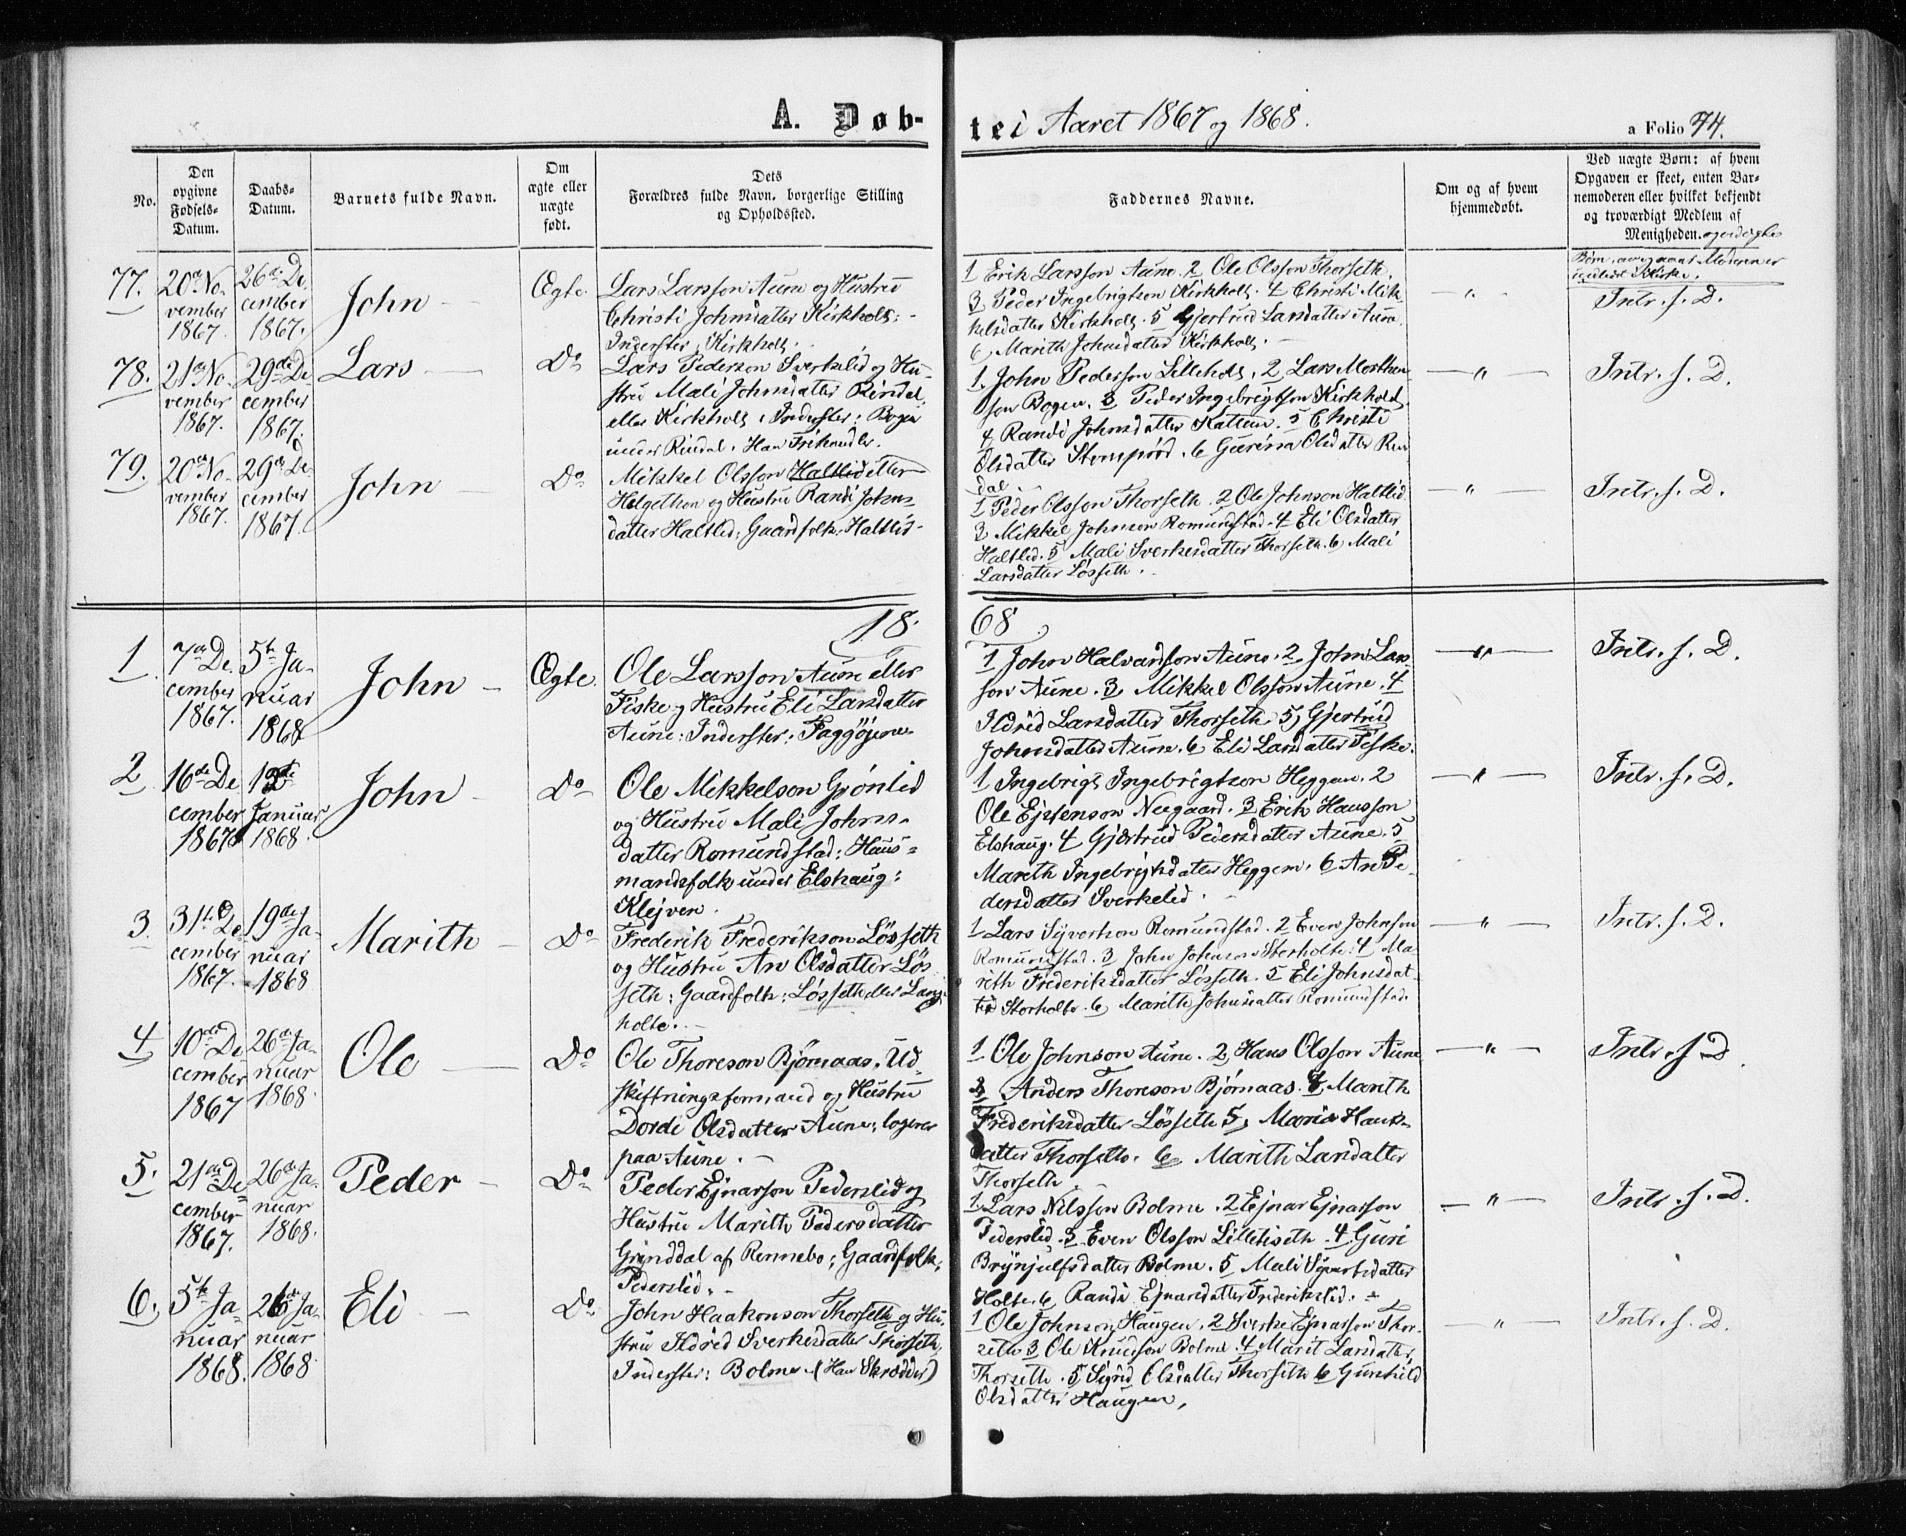 A. Døb-
te i Aaret 1867 og 1868.
a Folio 74.
No.
Den
opgivne
Fødsels-
Datum.
Daabs-
Datum.
Barnets fulde Navn.
Om
ægte eller
uægte
født.
Dets
Forældres fulde Navn, borgerlige Stilling
og Opholdssted.
Faddernes Navne.
Om og af hvem
hjemmedøbt.
Ved uægte Børn: af hvem
Opgaven er skeet, enten Bar-
nemoderen eller hvilket bekjendt
og troværdigt Medlem af
Menigheden.
77.
20de No-
vember
1867.
26de De
cember
1867.
John
Ægte
Lars Larsson Aune og Hustru
Christi Johnsdatter Kirkholt:
Inderster, Kirkholt.
1 Erik Larsson Aune. 2 Ole Olsson Thorseth.
3 Peder Ingebrigtson Kirkholt. 4 Christi Mik-
kelsdatter Kirkholt. 5 Gjertrud Larsdatter Aune
6 Marith Johnsdatter Kirkholt.
— " —
Intr. f. D.
78.
21de No
vember
1867.
29de De
cember
1867.
Lars
Do
Lars Pederson Sverkelid og Hu-
stru Mali Johnsdatter Rindal
eller Kirkholt, Inderster: Bogen
under Rindal. Han
1. John Pederson Lilleholt. 2 Lars Morthen
son Bogen. 3 Peder Ingebrigtson Kirkhold
4 Randi Johnsdatter Kattem. 5 Christi
Olsdatter Stomprød. 6 Gurina Olsdatter Rin
dal
— " —
Intr. f. D.
79.
20de No-
vember
1867.
29de De
cember
1867.
John
Do
Mikkel Olsson Haltlid eller
Helgethon og Hustru Randi Johns-
datter Haltlid: Gaardfolk. Haltlid-
1 Peder Olsson Thorseth. 2 Ole Johnson Haltlid
3 Mikkel Johnson Romundstad. 4 Eli Olsdatter
Haltlid. 5 Mali Sverkesdatter Thorseth. 6 Mali
Larsdatter Løsseth.
— " —
Intr. f. D.
18 68.
1
7de De
cember
1867.
5te Ja-
nuar
1868
John
Ægte.
Ole Larsson Aune eller
Fiske og Hustru Eli Larsdatter
Aune: Inderster:
1 John Halvardson Aune. 2 John Lars-
son Aune. 3 Mikkel Olsson Aune. 4
Ildrid Larsdatter Thorseth. 5 Gjertrud
Johnsdatter Aune. 6 Eli Larsdatter Fiske.
— " —
Intr. f. D.
2
16de De
cember
1867
Januar
1868.
John
Do
Ole Mikkelson Grønlid
og Hustru Mali Johns-
datter Romundstad: Huus-
mandsfolk under Elshaug:
Klejven.
1 Ingebrigt Ingebrigtson Heggem. 2
Ole Ejstenson Neegaard. 3 Erik Hansson
Elshaug. 4 Gjertrud Pedersdatter Aune. 5
Marith Ingebrigtsdatter Heggem. 6 An Pe-
dersdatter Sverkelid.
— " —
Intr. f. D.
3
31te De
cember
1867.
19de Ja-
nuar
1868
Marith
Do
Frederik Frederikson Løsseth
og Hustru An Olsdatter Løs
seth: Gaardfolk: Løsseth eller Lang-
holte.
1 Lars Syvertson Romundstad. 2 Even Johnson
Romundstad. 3 John Johnson Storholte. 4 Ma-
rith Frederiksdatter Løsseth. 5 Eli Johnsdat-
ter Storholte. 6 Marith Johnsdatter Romundstad.
— " —
Intr. f. D.
4
10de De
cember
1867
26de Ja-
nuar
1868.
Ole
Do
Ole Thoreson Bjørnaas. Ud-
skiftningsformand og Hustru
Dorde Olsdatter Aune: logerer
paa Aune.
1. Ole Johnson Aune. 2 Hans Olsson Aune
3 Anders Thoreson Bjørnaas. 4 Marith
Frederiksdatter Løsseth 5, Maria Hans-
datter Thorseth. 6 Marith Larsdatter
Thorseth
— " —
Intr. f. D.
5.
21de De
cember
1867.
26de Ja-
nuar
1868.
Peder
Do
Peder Ejnarson Pederslid og
Hustru Marith Pedersdatter
Grinddal af Rennebo; Gaardfolk:
Pederslid.
1. Lars Nilsson Bolme. 2 Ejnar Ejnarson
Pederslid. 3 Even Olsson Lilletiseth. 4 Guri
Brynjulfsdatter Bolme. 5 Mali Syvertsdatter
Holte. 6 Randi Ejnarsdatter Frederikslid.
— " —
Intr. f. D.
6.
5te Ja-
nuar
1868.
26de Ja-
nuar
1868
Eli
Do
John Haakonson Thorseth og Hu-
stru Ildrid Sverkesdatter Thorseth,
Inderster: Bolme (Han Skrædder)
1 Ole Johnson Haugen. 2 Sverke Ejnarson Thor-
seth 3 Ole Knudson Bolme. 4 Marit Larsdatter
Thorseth. 5 Sigrid Olsdatter Thorseth 6 Gunhild
Olsdatter Haugen.
— " —
Intr. f. D.